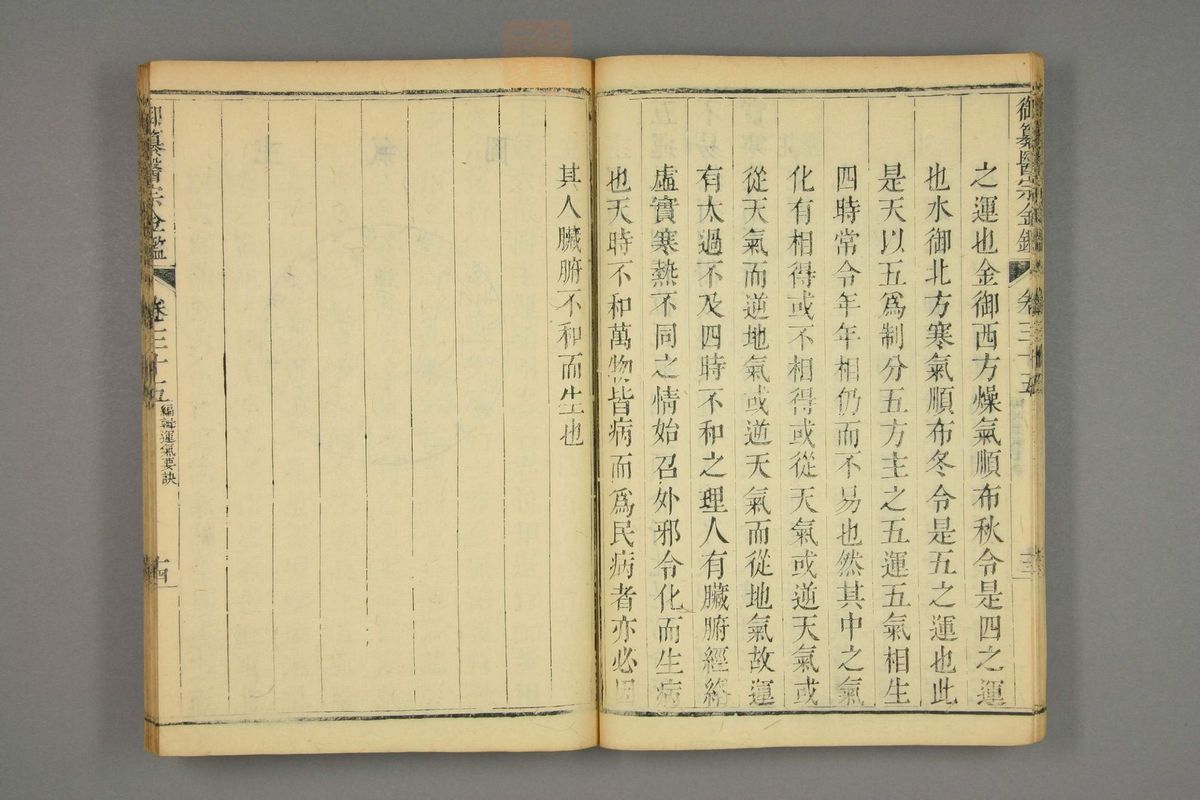 御纂醫宗金鑑
卷三十五
之運也金御西方燥氣順布秋令是四之運
也水御北方寒氣順布冬令是五之運也此
是天以五爲制分五方主之五運五氣相生
四時常令年年相仍而不易也然其中之氣
化有相得或不相得或從天氣或逆天氣或
從天氣而逆地氣或逆天氣而從地氣故運
有太過不及四時不和之理人有臟腑經絡
虛實寒熱不同之情始召外邪令化而生病
也天時不和萬物皆病而爲民病者亦必因
其人臟腑不和而生也
御纂醫宗金鑑
卷三十五
編輯運氣要訣
十四